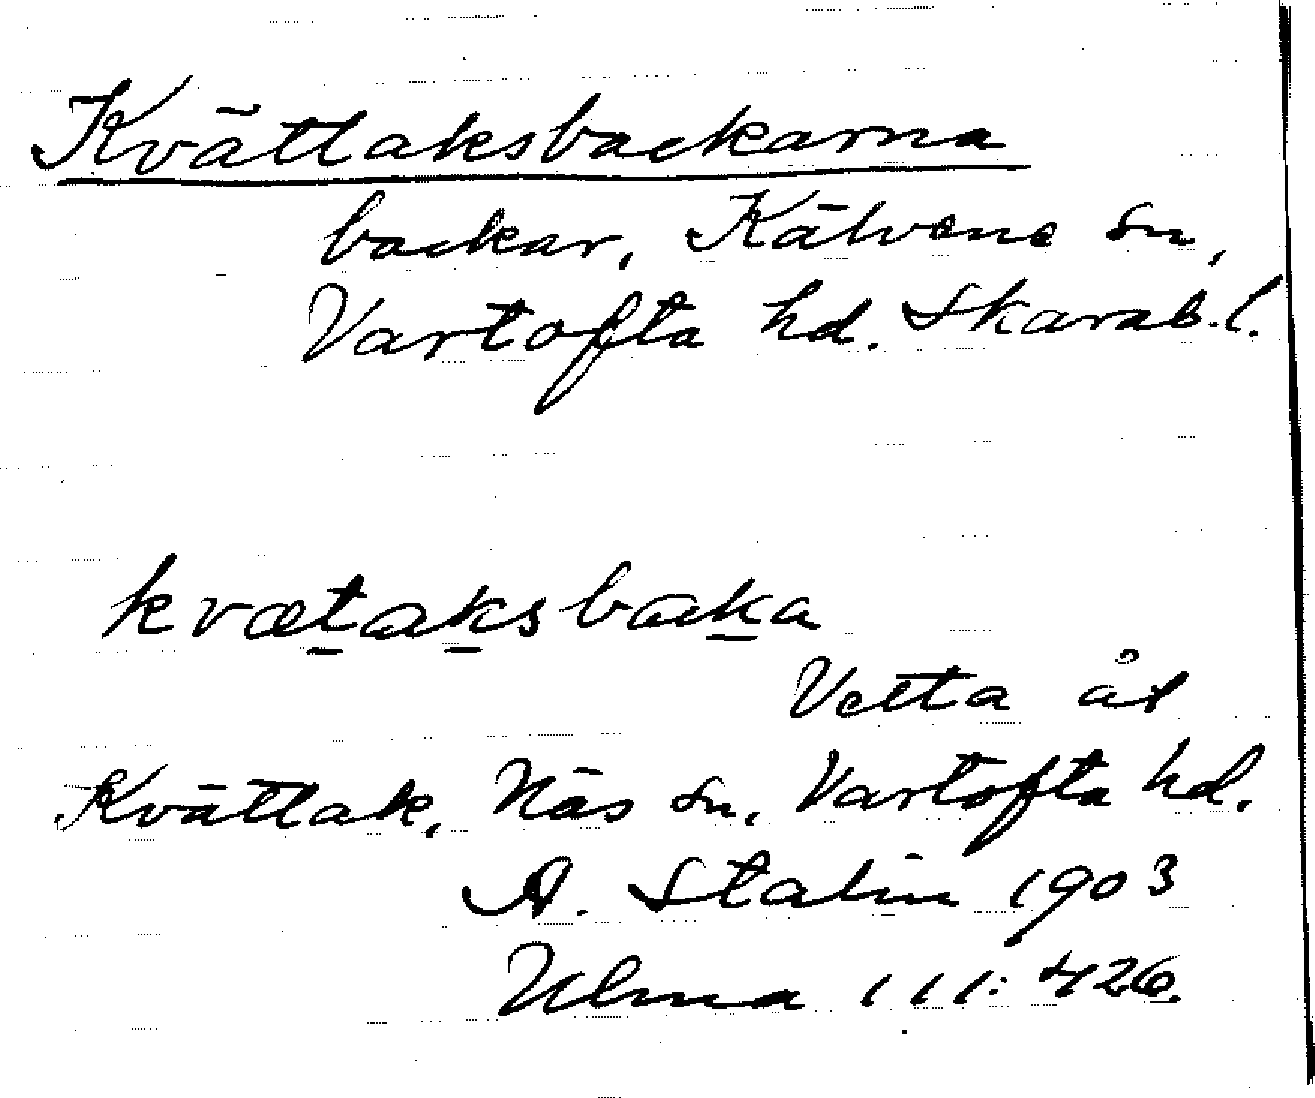 Kvättaksbackarna
backar, Kälvene sn,
Vartofta hd. Skarab.l.
kvætaksbacka
Vetta åt
Kvättak, Näs sn, Vartofta hd.
A. Stalin 1903
Ulma 111:426.